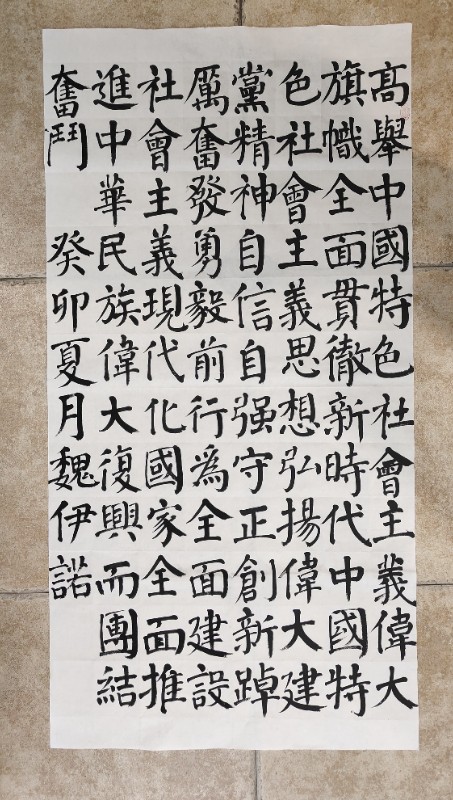 高舉中國特色社會主義偉大
旗幟全面貫徹新時代中國特
色社會主義思想弘揚偉大建
黨精神自信自强守正創新踔
厲奮發勇毅前行為全面建設
社會主義現代化國家全面推
進中華民族偉大復興而團結
奮鬥 癸卯夏月魏伊諾